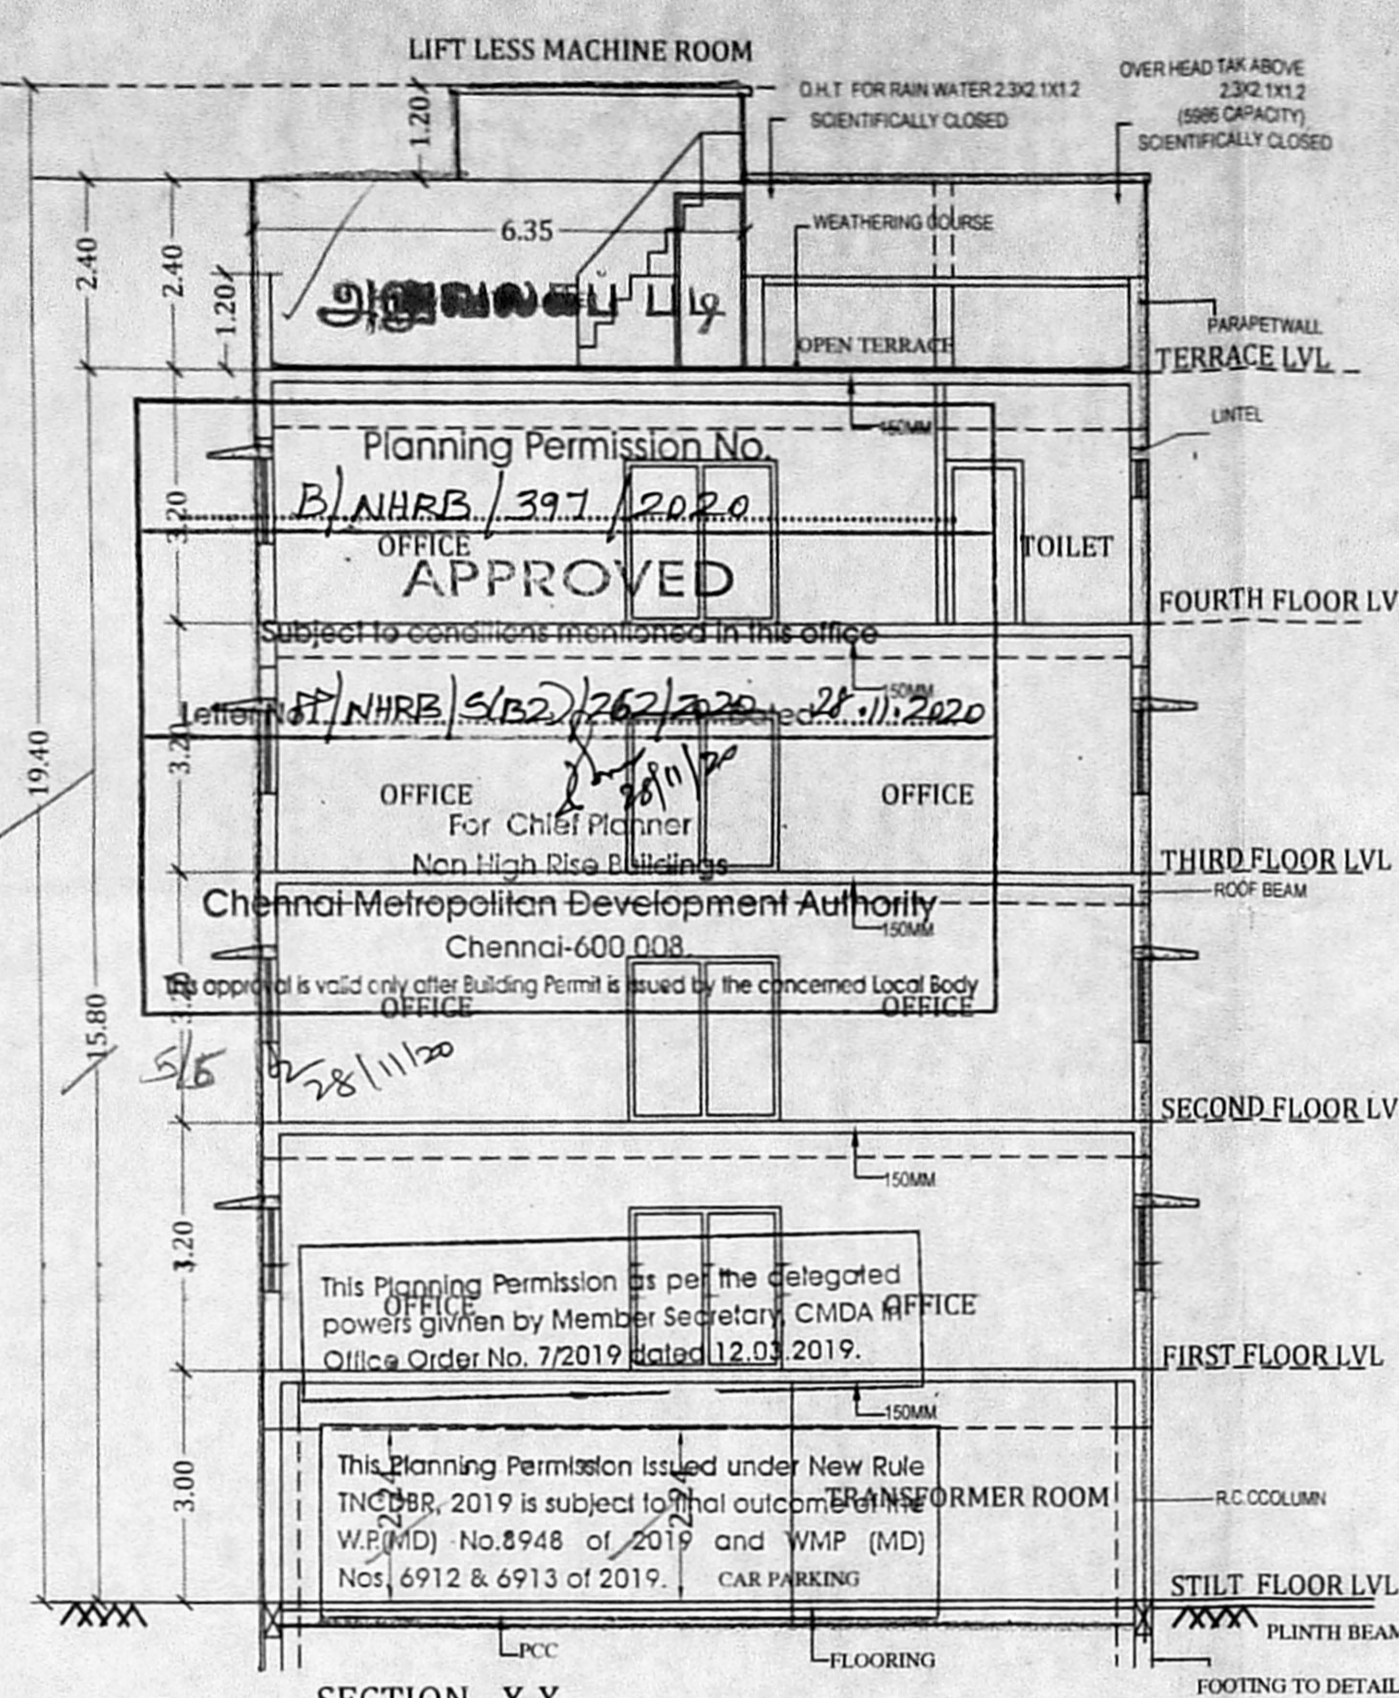 LIFT LESS MACHINE ROOM
O.H.T FOR RAIN WATER 2.3X2.1X1.2
SCIENTIFICALLY CLOSED
OVER HEAD TAK ABOVE
2.3X2.1X1.2
(5986 CAPACITY)
SCIENTIFICALLY CLOSED
1.20
2.40
2.40
1.20
6.35
WEATHERING COURSE
படி
OPEN TERRACE
PARAPETWALL
TERRACE LVL
LINTEL
150MM
Planning Permission No.
B/NHRB/397/2020
3.20
OFFICE
TOILET
APPROVED
FOURTH FLOOR LV
Subject to conditions mentioned in this office
150MM
Letter No. /NHRB/S(B2)/262/2020 Dated 28.11.2020
19.40
3.20
28/11/20
OFFICE
OFFICE
For Chief Planner
Non High Rise Buildings
THIRD FLOOR LVL
ROOF BEAM
Chennai Metropolitan Development Authority
150MM
Chennai-600 008.
This approval is valid only after Building Permit is issued by the concerned Local Body
OFFICE
OFFICE
15.80
5/5
28/11/20
SECOND FLOOR LV
150MM
3.20
This Planning Permission as per the delegated
OFFICE
OFFICE
powers givnen by Member Secretary, CMDA in
Office Order No. 7/2019 dated 12.03.2019.
FIRST FLOOR LVL
150MM
3.00
This Planning Permission Issued under New Rule
TNCDBR, 2019 is subject to final outcome of the
TRANSFORMER ROOM
R.C.CCOLUMN
2.24
2.24
W.P.(MD) No.8948 of 2019 and WMP (MD)
Nos. 6912 & 6913 of 2019.
CAR PARKING
STILT FLOOR LVL
PLINTH BEAM
PCC
FLOORING
FOOTING TO DETAIL
SECTION X-X